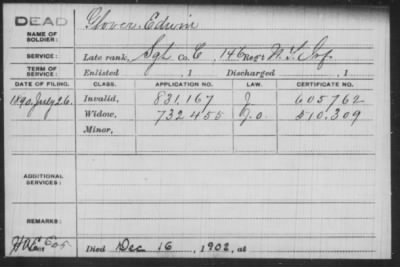 DEAD
NAME OF SOLDIER: Glover, Edwin
SERVICE: Late rank, Sgt Co. C, 146 Reg't N.Y. Inf.
TERM OF SERVICE: Enlisted , 1 Discharged , 1
DATE OF FILING. CLASS. APPLICATION NO. LAW. CERTIFICATE NO.
1890, July 26. Invalid, 831.167 J 605762
Widow, 732455 G.O. 510.309
Minor,
ADDITIONAL SERVICES:
REMARKS:
Died Dec 16, 1902, at